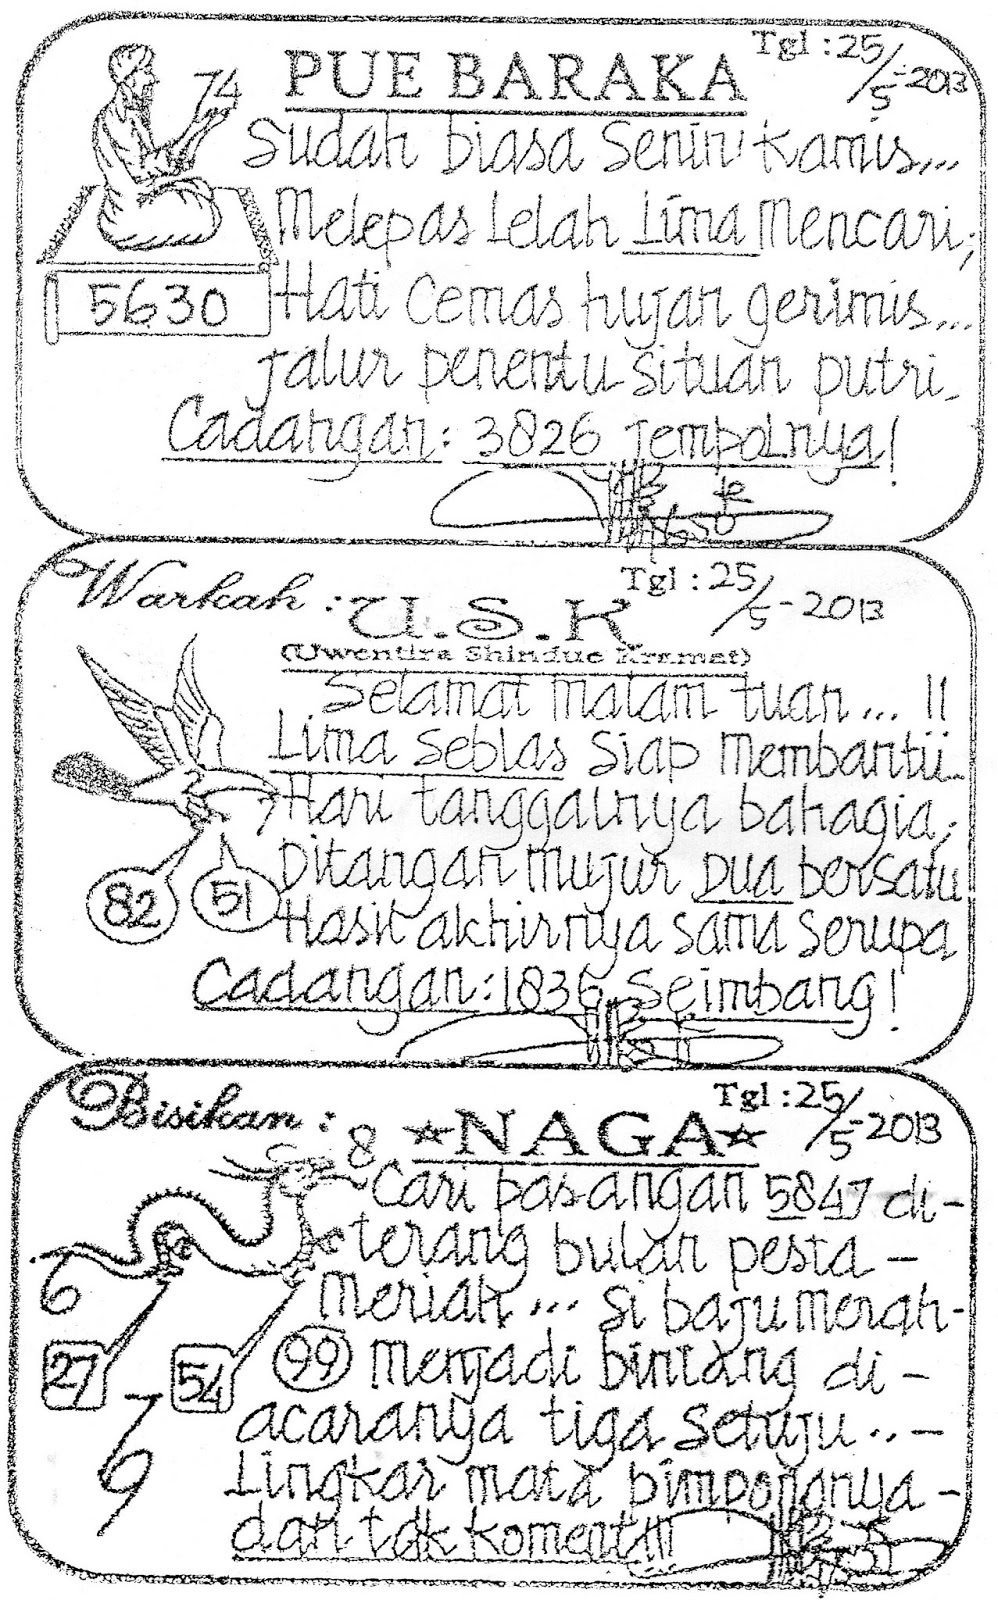 PUE BARAKA
Tgl : 25/5-2013
74
Sudah biasa Senin Kamis...
Melepas Lelah Lima Mencari;
5630
Hati Cemas hujan gerimis...
Jalur penentu situan putri-
Cadangan: 3826 Jempolnya!
Warkah : U.S.K
Tgl : 25/5-2013
(Uwentira Shindue Kramat)
Selamat malam tuan... !!
Lima Seblas Siap Membantu-
7
Hari tanggalnya bahagia;
Ditangan mujur Dua bersatu
82
51
Hasil akhirnya sama serupa
Cadangan: 1836 Seimbang!
Bisikan : NAGA
Tgl : 25/5-2013
8
Cari pasangan 5847 di-
terang bulan pesta -
6
Meriah... Si baju merah-
27
54
99
Menjadi bintang di -
acaranya tiga setuju..-
79
Lingkar mata
dan tdk Koment!!!